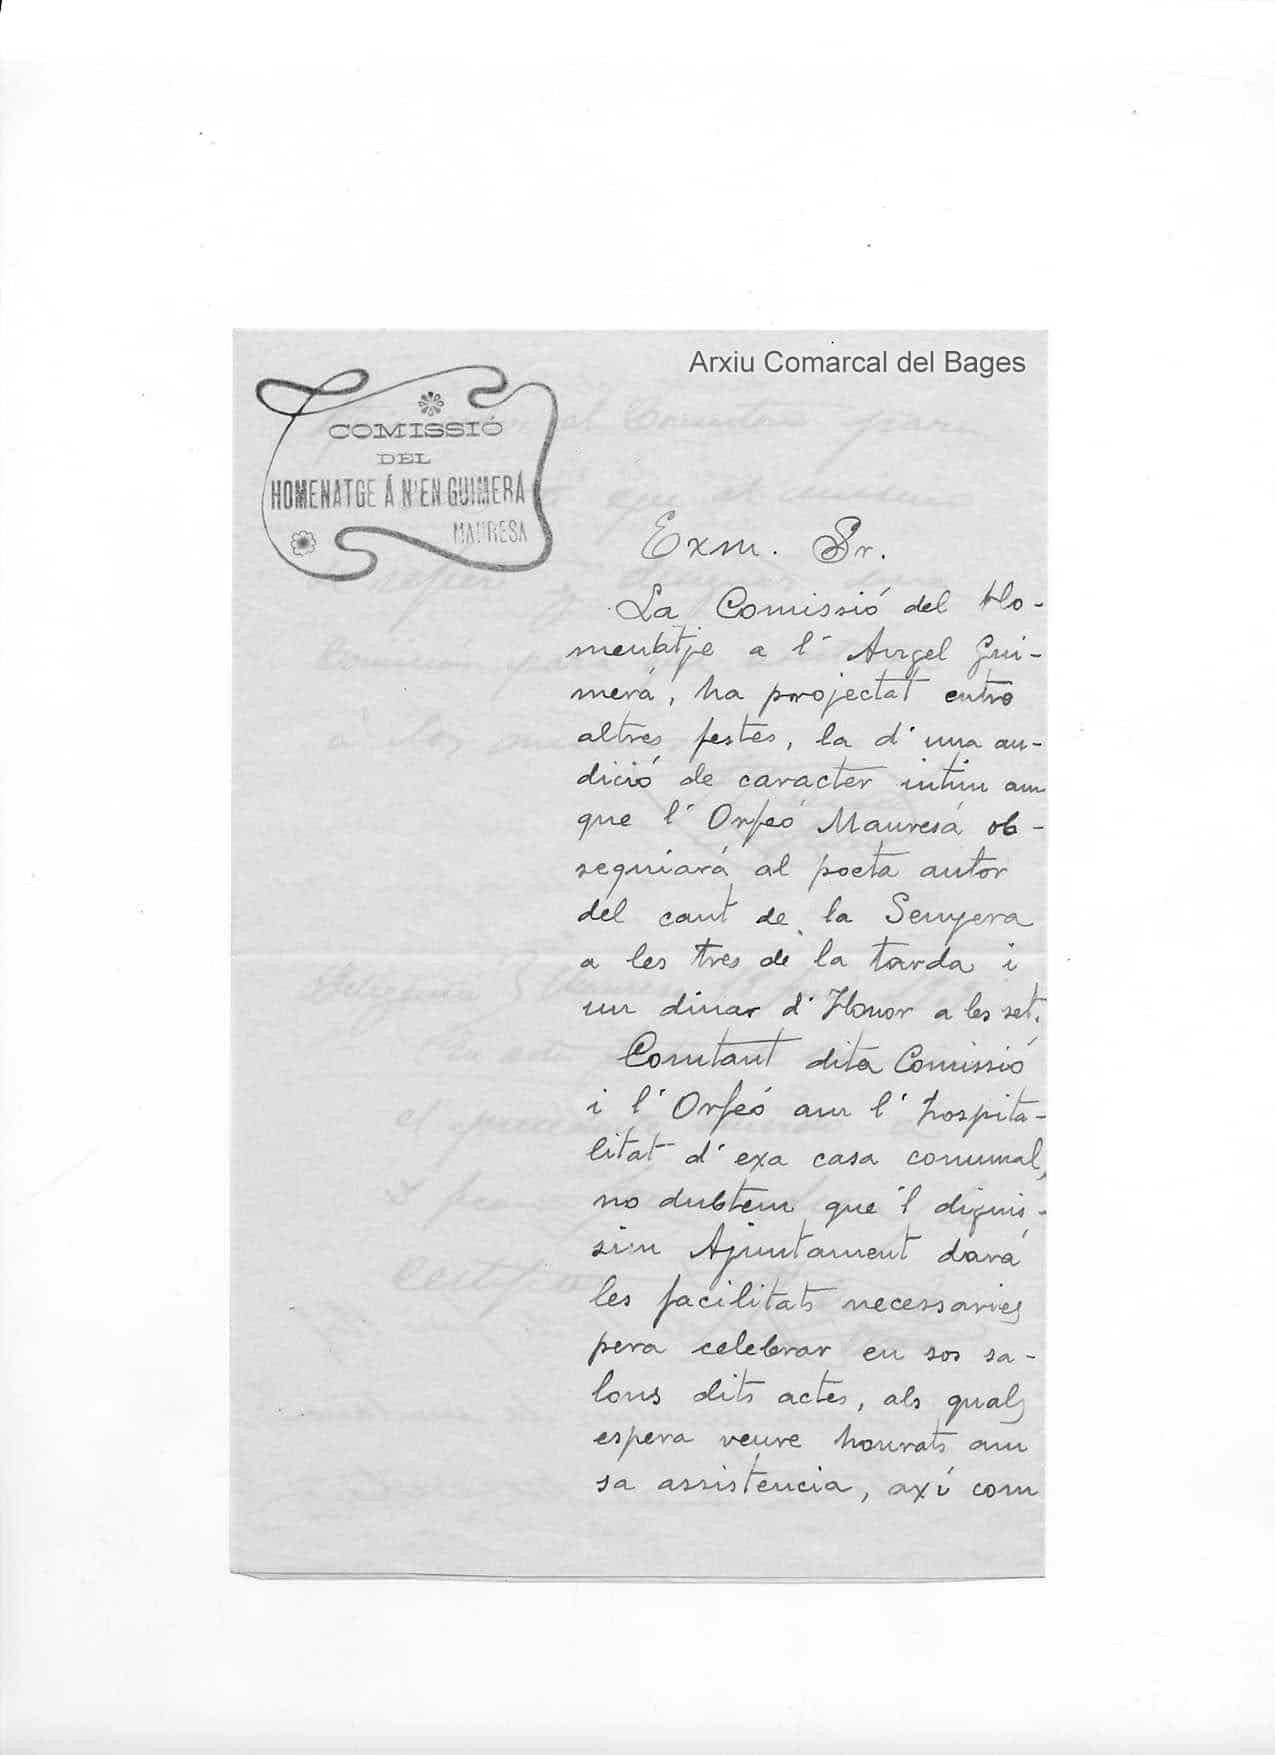 Arxiu Comarcal del Bages
COMISSIÓ
DEL
HOMENATGE Á N'EN GUIMERÁ
MANRESA
Exm. Sr.
La Comissió del Ho-
menatje a l' Angel Gui-
merá, ha projectat entre
altres festes, la d' una au-
dició de caracter intim am
que l' Orfeó Manresá ob-
sequiará al poeta autor
del cant de la Senyera
a les tres de la tarda i
un dinar d' Honor a les set.
Comtant dita Comissió
i l' Orfeó am l' hospita-
litat d' exa casa comunal,
no dubtem que 'l dignis-
sim Ajuntament dará
les facilitats necessaries
pera celebrar en sos sa-
lons dits actes, als quals
espera veure honrats am
sa assistencia, axí com